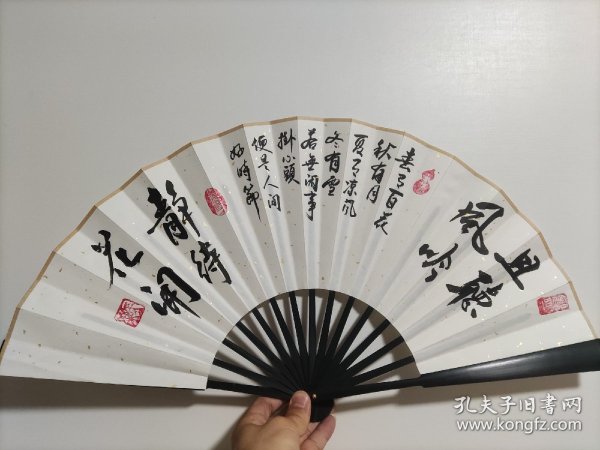 且聽
風吟
春有百花
秋有月
夏有凉风
冬有雪
若無闲事
掛心頭
便是人间
好時節
靜待
花開
孔夫子旧书网
www.kongfz.com